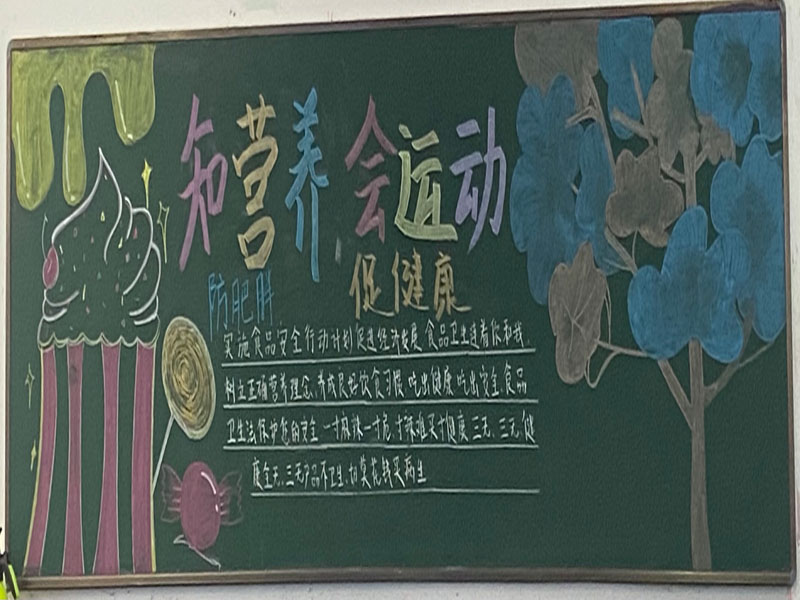 知营养 会运动
防肥胖 促健康
实施食品安全行动计划促进经济发展 食品卫生连着你和我
树立正确营养理念、养成良好饮食习惯 吃出健康 吃出安全 食品
卫生法保护您的安全 一寸麻辣一寸危、寸辣难买寸健康 三无、三无、健
康全无、三无产品不卫生、切莫花钱买病生